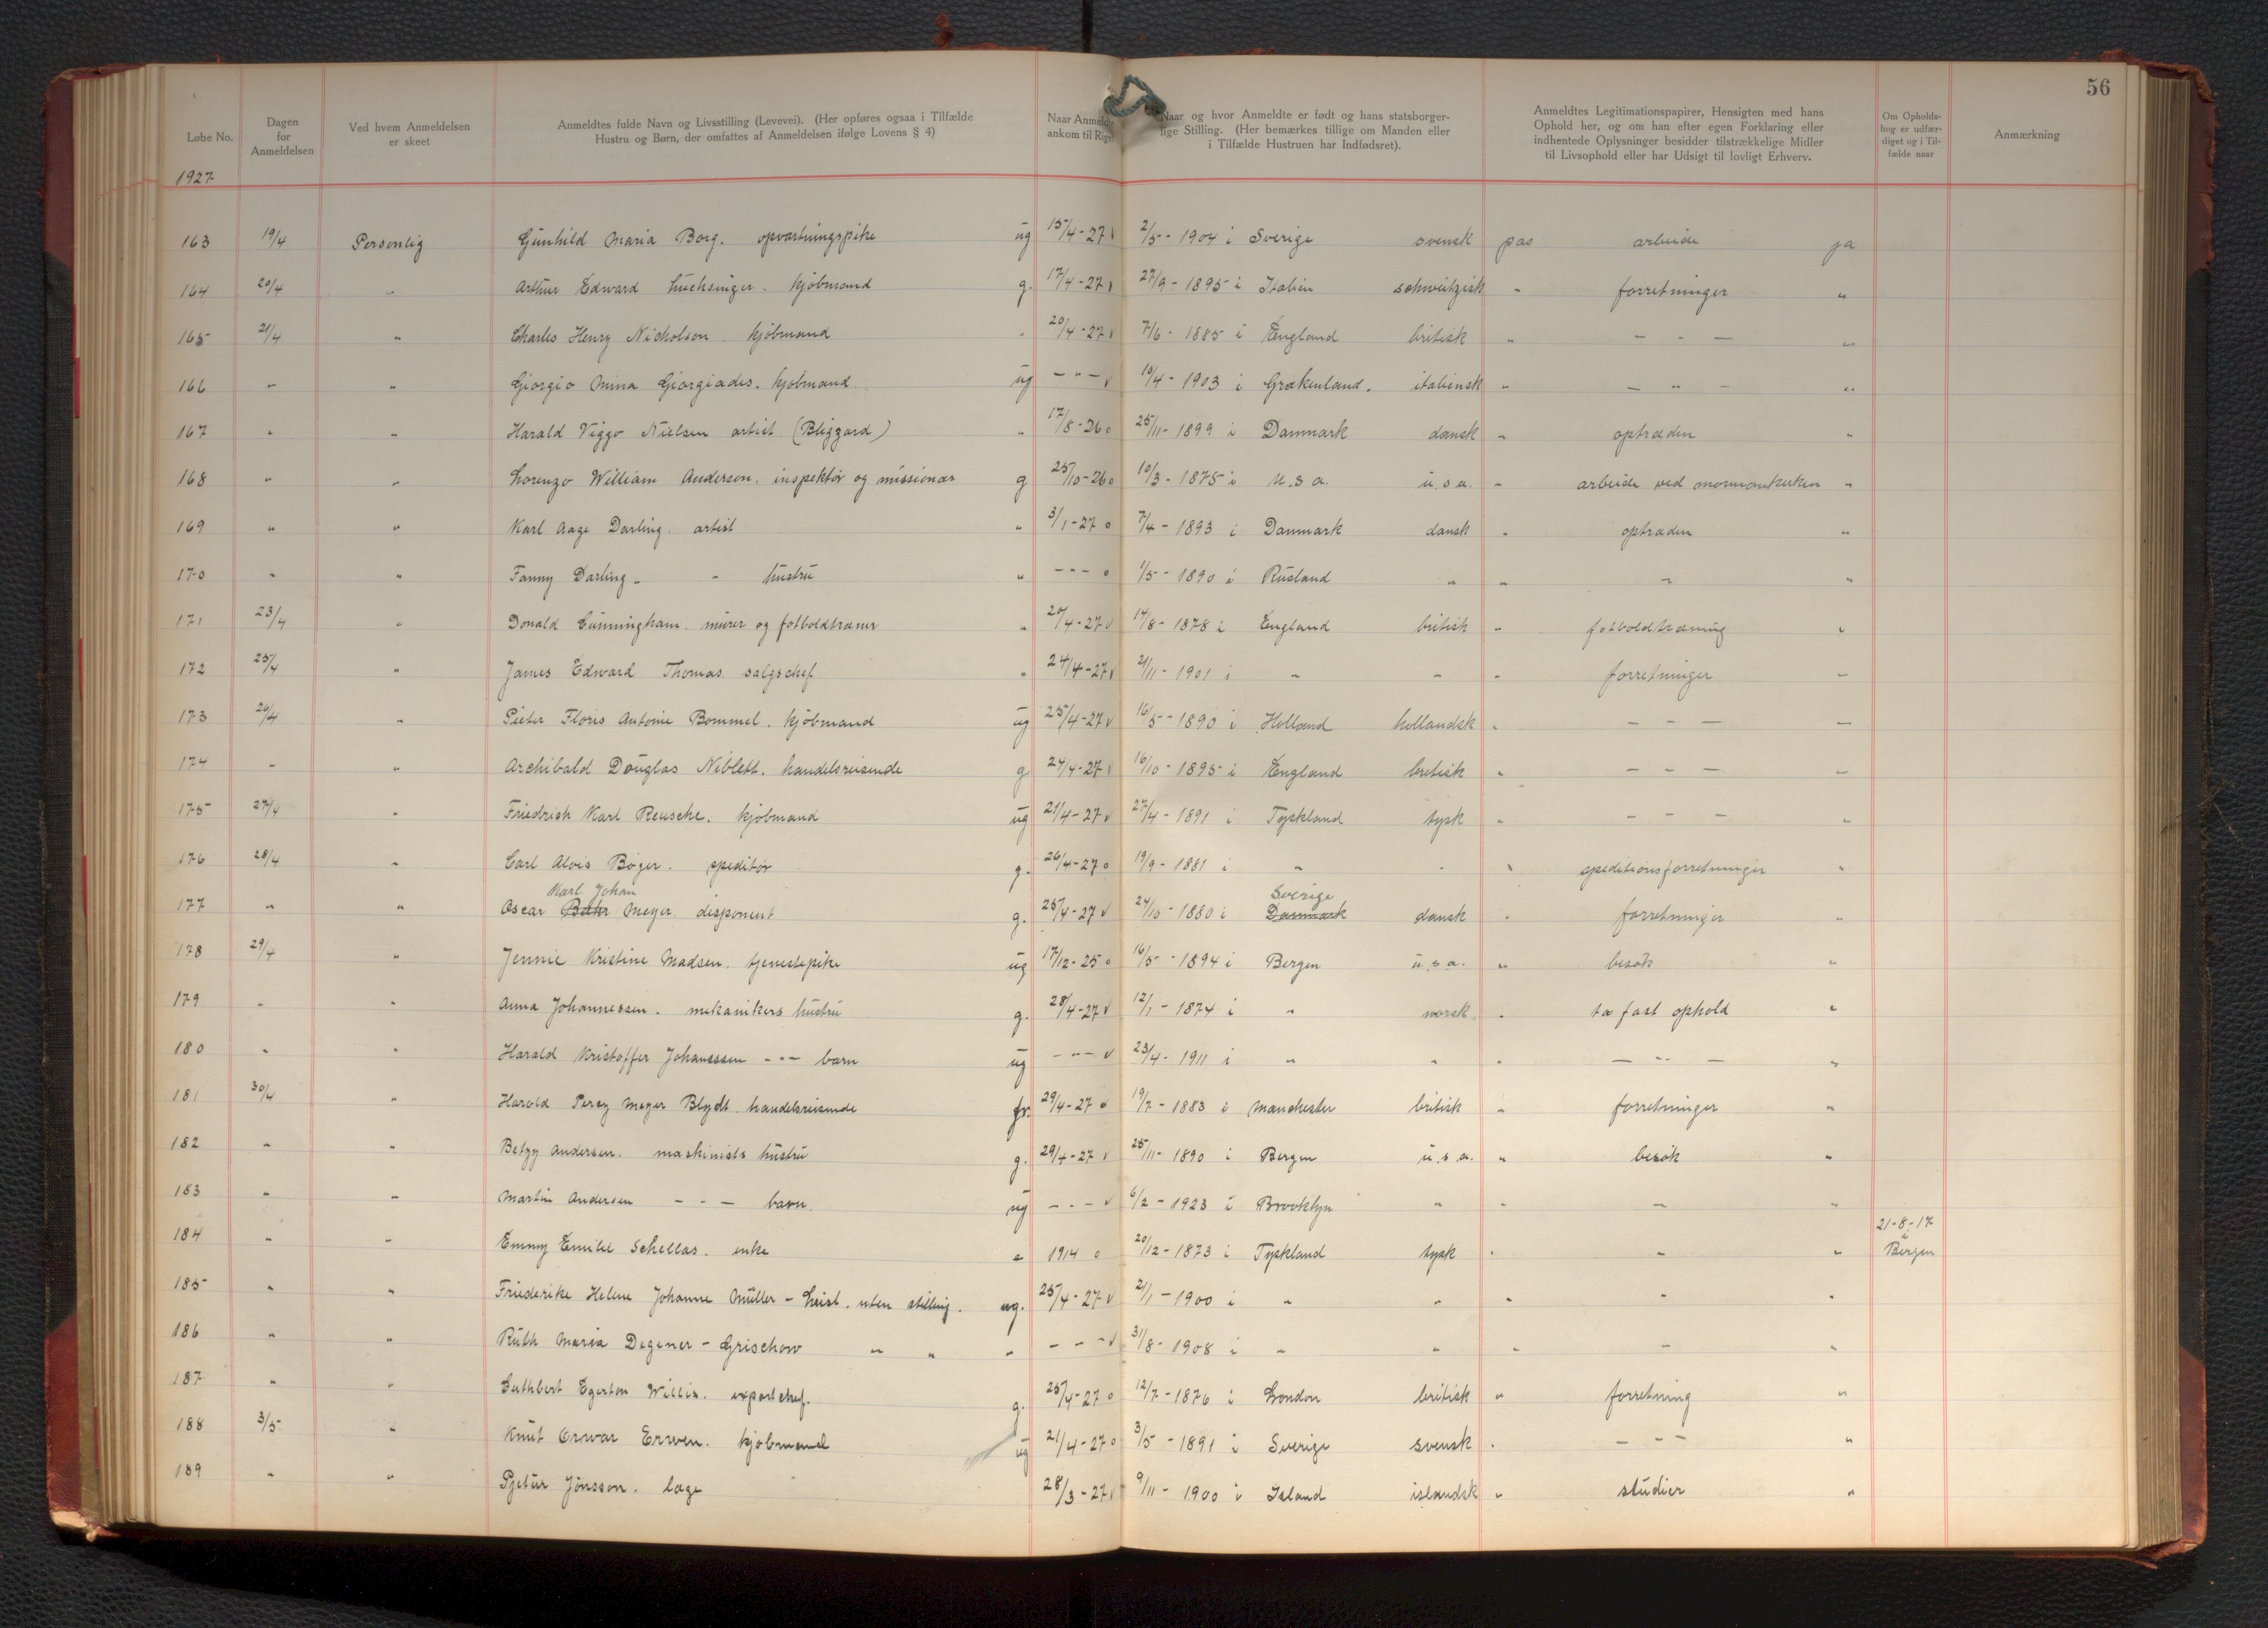 56
Løbe No.
Dagen for Anmeldelsen
Ved hvem Anmeldelsen er skeet
Anmeldtes fulde Navn og Livsstilling (Levevei). (Her opføres ogsaa i Tilfælde Hustru og Børn, der omfattes af Anmeldelsen ifølge Lovens § 4)
Naar Anmeldte ankom til Riget
Naar og hvor Anmeldte er født og hans statsborgerlige Stilling. (Her bemærkes tillige om Manden eller i Tilfælde Hustruen har Indfødsret).
Anmeldtes Legitimationspapirer, Hensigten med hans Ophold her, og om han efter egen Forklaring eller indhentede Oplysninger besidder tilstrækkelige Midler til Livsophold eller har Udsigt til lovligt Erhverv.
Om Opholdsbog er udfærdiget og i Tilfælde naar
Anmærkning
1927
163 19/4 Personlig Gunhild Maria Borg. opvartningspike ug 15/4-27 v 2/5-1904 i Sverige svensk pas arbeide ja
164 20/4 " Arthur Edward Luchsinger. kjøbmand g. 17/4-27 v 27/9-1895 i Italien schweitzisk " forretninger "
165 21/4 " Charles Henry Nicholson. kjøbmand " 20/4-27 v 7/6-1885 i England britisk " — " — "
166 " " Giorgio Mina Giorgiades. kjøbmand ug — " — v 10/4-1903 i Grækenland. italiensk " — " — "
167 " " Harald Viggo Nielsen artist (Blizzard) " 17/8-26 o 25/11-1899 i Danmark dansk " optræden "
168 " " Lorenzo William Anderson. inspektør og missionær g 25/10-26 o 10/3-1875 i U.S.A. u.s.a. " arbeide ved mormonkirken "
169 " " Karl Aage Darling. artist " 3/1-27 o 7/4-1893 i Danmark dansk " optræden "
170 " " Fanny Darling — " hustru " — " — o 1/5-1890 i Rusland " " " "
171 23/4 " Donald Cunningham. murer og fotboldtræner " 20/4-27 v 14/8-1878 i England britisk " fotboldtræning "
172 25/4 " James Edward Thomas. salgschef " 24/4-27 v 21/11-1901 i " " " forretninger "
173 26/4 " Pieter Floris Antonie Bommel. kjøbmand ug 25/4-27 v 16/5-1890 i Holland hollandsk " — " — "
174 " " Archibald Douglas Niblett. handelsreisende g 24/4-27 v 16/10-1895 i England britisk " — " — "
175 27/4 " Friedrich Karl Reusche. kjøbmand ug 21/4-27 v 27/4-1891 i Tyskland tysk " — " — "
176 28/4 " Carl Alois Böger. speditør g. 26/4-27 o 19/9-1881 i " " " speditionsforretninger "
Karl Johan Sverige
177 " " Oscar Meyer. disponent g. 25/4-27 v 24/10-1880 i Danmark dansk " forretninger "
178 29/4 " Jennie Kristine Madsen. tjenestepike ug 17/12-25 o 16/5-1894 i Bergen u.s.a. " besøk "
179 " " Anna Johannessen. mekanikers hustru g. 28/4-27 v 12/1-1874 i " norsk " ta fast ophold "
180 " " Harald Kristoffer Johanessen — " — barn ug — " — v 23/4-1911 i " " " — " — "
181 30/4 " Harold Percy Meyer Blydt. handelsreisende fr. 29/4-27 o 19/7-1883 i Manchester britisk " forretninger "
182 " " Betzy Andersen. maskinists hustru g. 29/4-27 v 25/11-1890 i Bergen u.s.a. " besøk "
183 " " Martin Andersen — " — barn. ug — " — v 6/2-1923 i Brooklyn " " " "
184 " " Emmy Emilie Schellas. enke " 1914 o 20/12-1873 i Tyskland tysk " " " 21-8-17 i Bergen
185 " " Friederike Helene Johanne Müller-Leist. uten stilling. ug. 25/4-27 v 2/1-1900 i " " " " "
186 " " Ruth Maria Degener-Grischow " " " — " — v 31/8-1908 i " " " " "
187 " " Cuthbert Egerton Willis. exportchef. g. 25/4-27 o 12/7-1876 i London britisk " forretning "
188 3/5 " Knut Orwar Erwen. kjøbmand ug 21/4-27 o 3/5-1891 i Sverige svensk " — " — "
189 " " Pjetur Jónsson. læge 28/3-27 v 9/11-1900 i Island islandsk " studier "